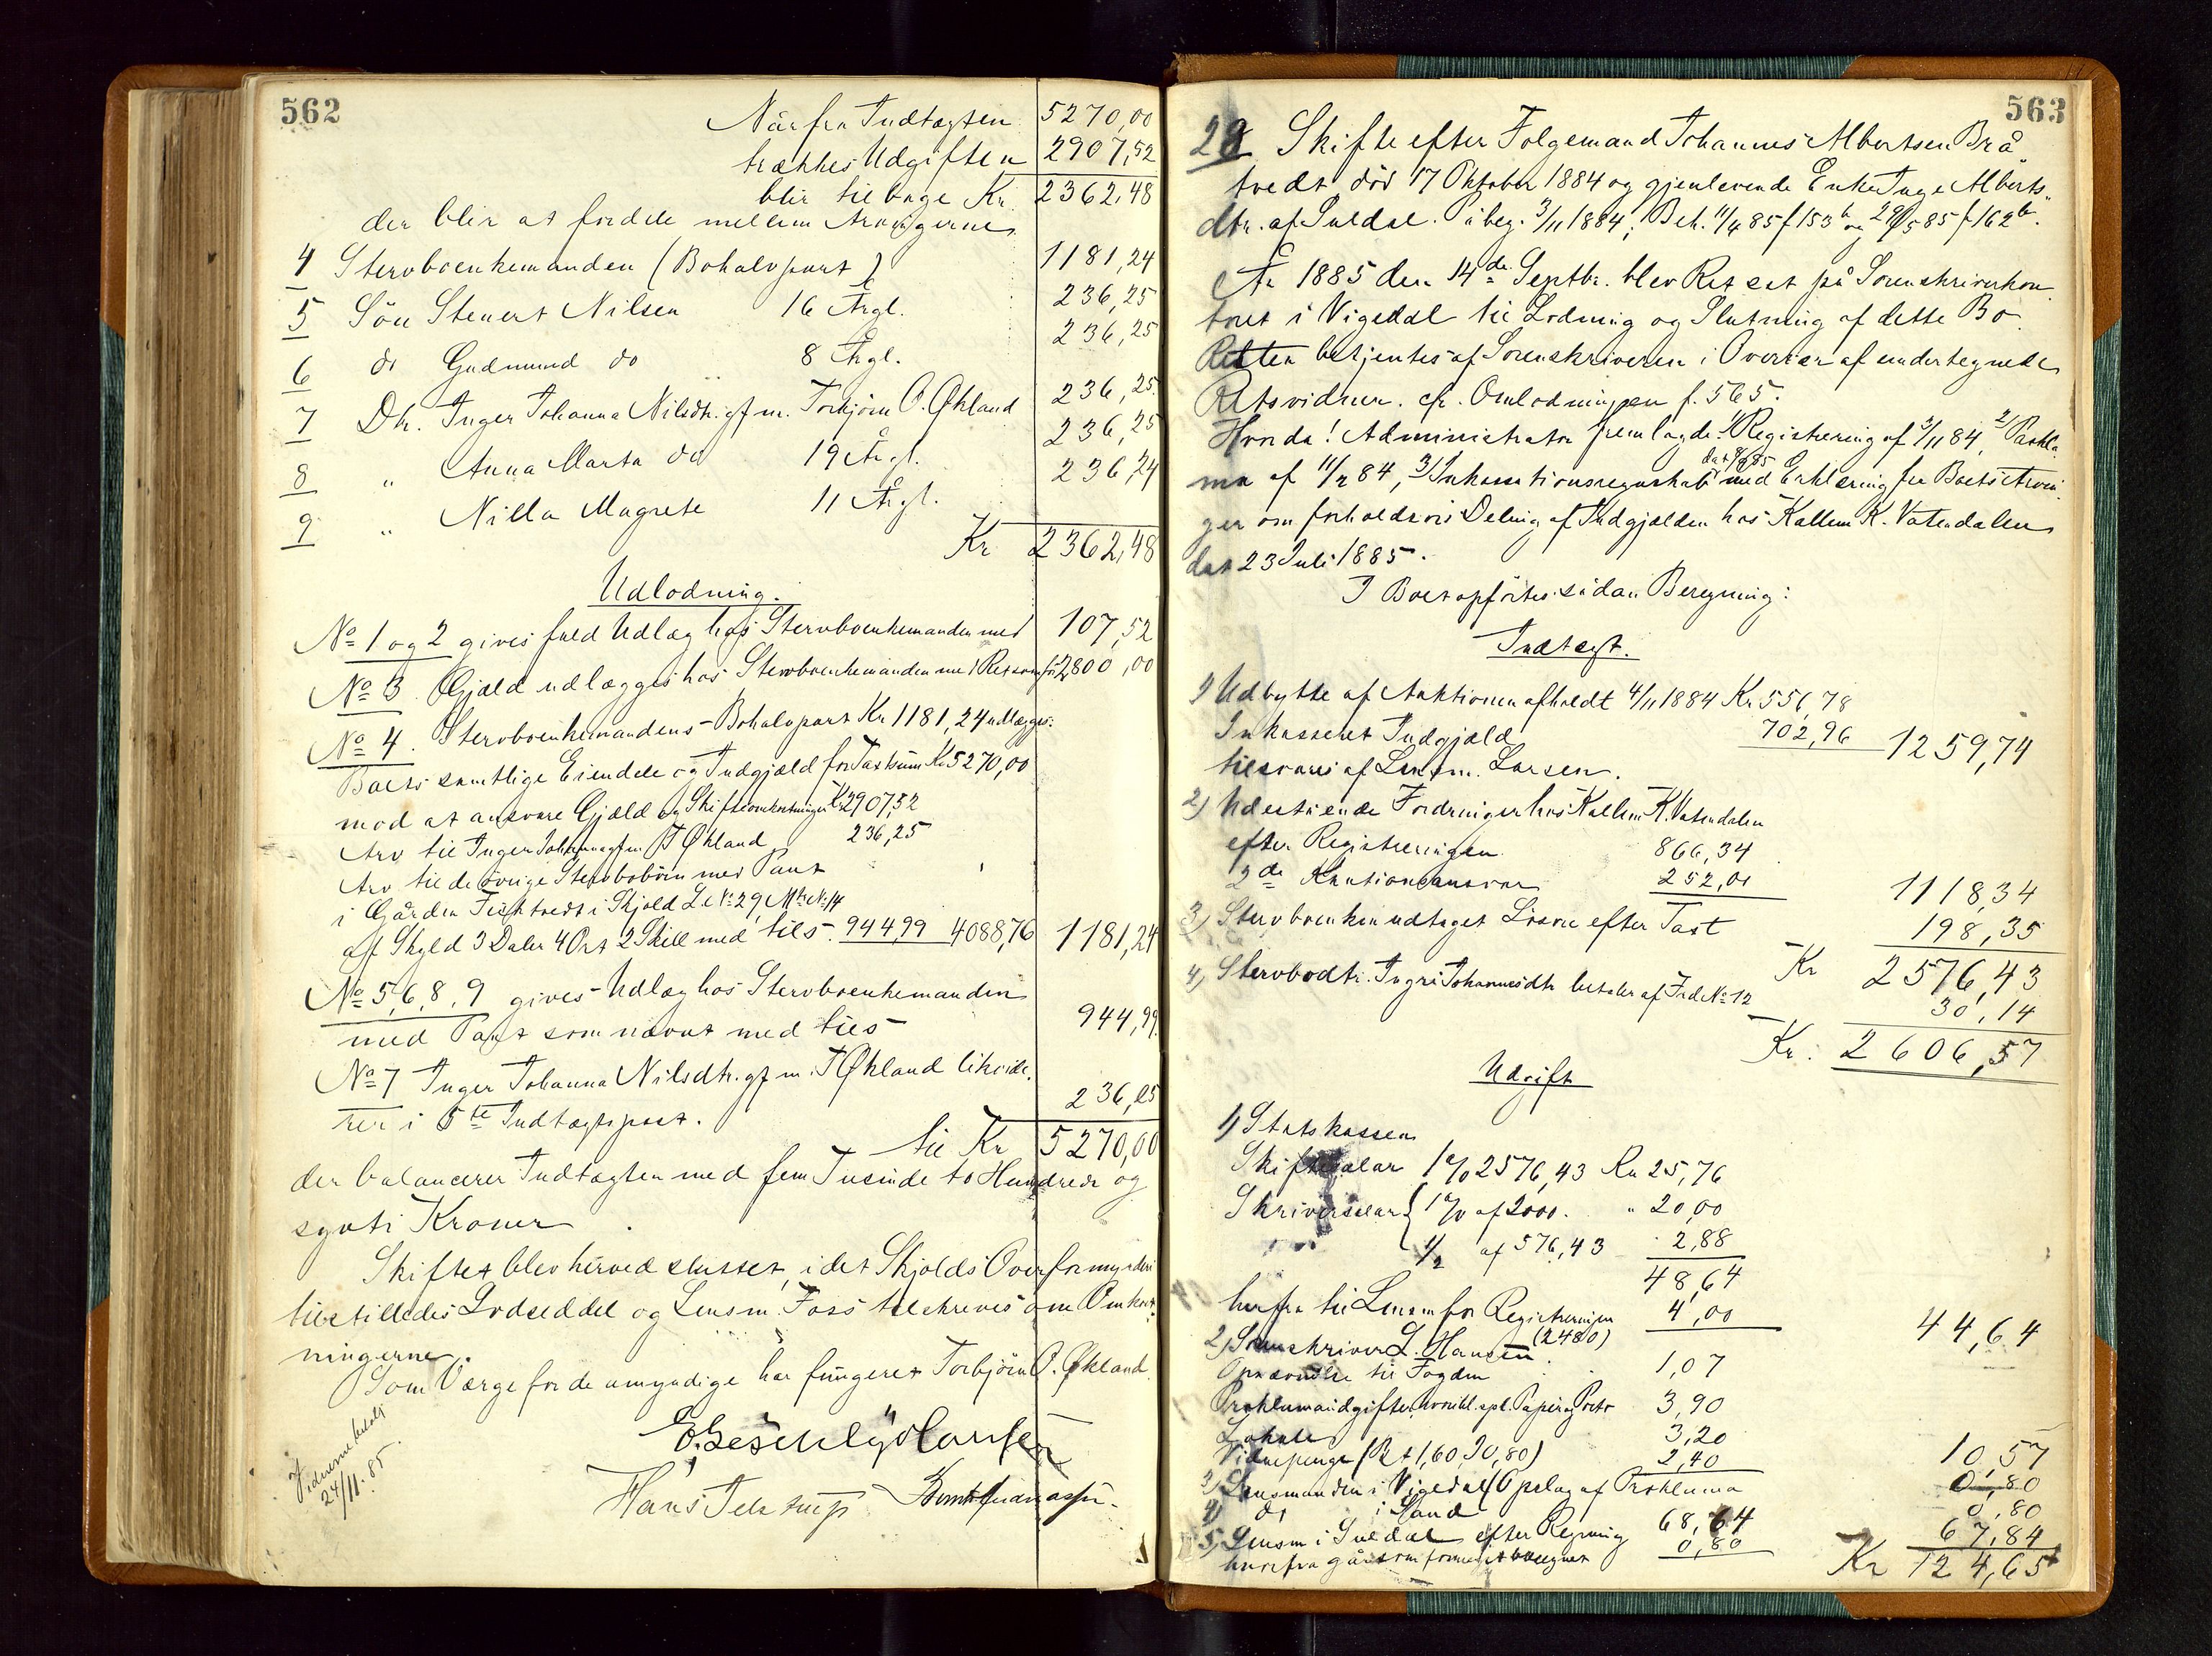 562
Når fra Indtægten 5270,00
trækkes Udgiften 2907,52
blir tilbage Kr. 2362,48
der blir at fordele mellem Arvingerne
4 Stervboenkemanden (Bohalvpart) 1181,24
5 Sön Stenert Nilsen 16 Årgl. 236,25
6 do Gudmund do 8 Årgl. 236,25
7 Dtr. Inger Johanna Nilsdtr. gf m. Torbjörn O. Økland 236,25
8 " Anna Marta do 19 Årgl. 236,25
9 " Nilla Magrete 11 Årgl. 236,24
Kr 2362,48
Udlodning.
No 1 og 2 gives fuld Udlæg hos Stervboenkemanden med 107,52
No 3. Gjæld udlægges hos Stervboenkemanden med 2800,00
No 4. Stervboenkemandens Bohalvpart Kr 1181,24 udlægges:
Boets samtlige Eiendele og Indgjæld for Taxtsum Kr 5270,00
mod at ansvare Gjæld og Skifteomkostninger Kr 2907,52
Arv til Inger Johanna gf m T Økland 236,25
Arv til de övrige Stervbobörn med Pant
i Gården i Skjold L No 29, Mtr No 14
af Skyld 3 Daler 4 Ort 2 Skill med tils. 944,99 4088,76 1181,24
No 5, 6, 8, 9 gives Udlæg hos Stervboenkemanden
med Pant som nævnt med tils 944,99
No 7 Inger Johanna Nilsdtr. gf m. T Økland likvide-
rer i 5te Indtægtspost. 236,25
til Kr 5270,00
der balancerer Indtægten med fem Tusinde to Hundrede og
sytti Kroner.
Skiftet blev herved sluttet, idet Skjolds Overformynderi
tilstilledes Lodseddel og Lensm. Foss tilskreves om Omkost-
ningerne.
Som Værge for de umyndige har fungeret Torbjörn O. Økland
Vidnerne betalt
24/11. 85.
Hans Telstrup
563
28 Skifte efter Folgemand Johannes Albertsen Brå-
tvedt död 17 Oktober 1884 og gjenlevende Enke Inge Alberts-
dtr. af Suldal. Påbeg. 3/11 1884; Beh. 11/4 85 f 153b og 29/5 85 f 162b.
År 1885 den 14de Septbr. blev Ret sat på Sorenskriverkon-
toret i Vigedal til Lodning og Slutning af dette Bo
Retten betjentes af Sorenskriveren i Overvær af undertegnede
Retsvidner. cfr. Omlodningen f. 565.
Hvorda! Administrator fremlagde 1) Registrering af 3/11 84, 2) Prokla-
ma af 11/2 84, 3) Inkassationsregnskab med Erklæring fra Boets Arvin-
ger om forholdsvis Deling af Indgjælden hos Kallem K. Vatendalen
dat 23 Juli 1885.
I Boet opförtes sådan Beregning:
Indtægt.
1) Udbytte af Auktionen afholdt 4/11 1884 Kr 556,78
Inkasseret Indgjæld 702,96 1259,74
tilsvares af Lensm. Larsen.
2) Udestående Fordringer hos Kallem K. Vatendalen
efter Registreringen 866,34
2de Kautionsansvar 252,00 1118,34
3) Stervboenken udtaget Lösöre efter Taxt 198,35
Kr 2576,43
4) Stervbodtr. Ingri Johannesdtr betaler af Frd No 12 30,14
Kr. 2606,57
Udgift
1) Statskassen
Skiftesalar 1 % 2576,43 Kr 25,76
Skriversalar 1 % af 2000. " 20,00
1/2 af 576,43 2,88
48,64
herfra til Lensm for Registreringen 4,00 44,64
2) Sorenskriver L. Hansen (2480)
Opnævnelse til Fogden 1,07
Proklamaudgifter, Papir og Porto 3,90
Lokale 3,20
Vidnepenge (Ret 1,60, 0,80) 2,40 10,57
3) Lensmanden i Vigedal Opslag af Proklama 0,80
4) do i Sand 0,80
5) Lensm i Suldal efter Regning 68,64
0,80 67,84
Kr 124,65